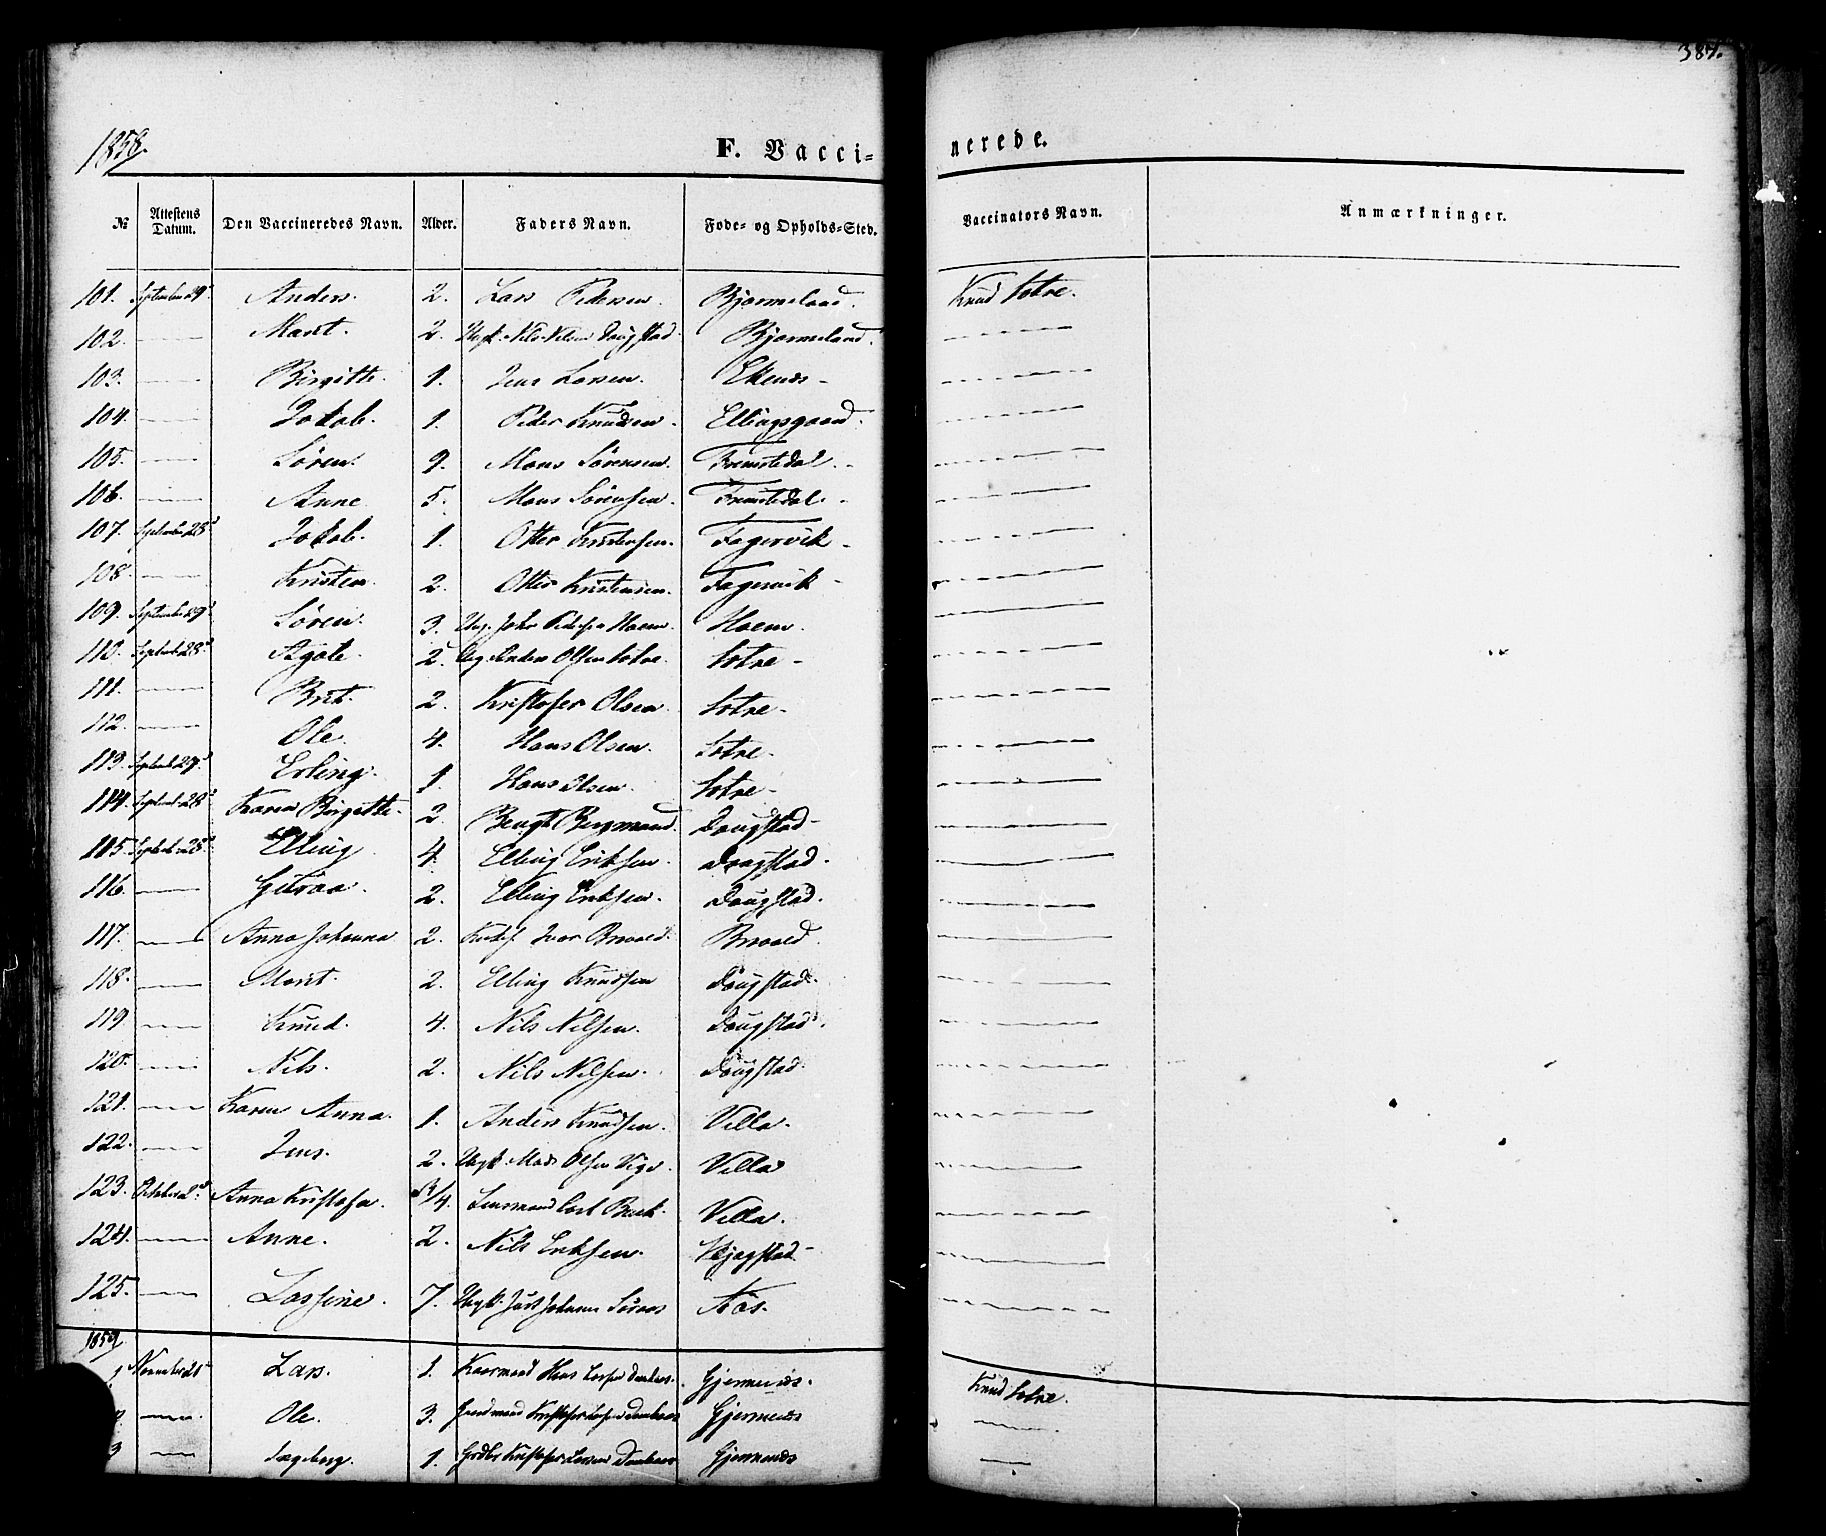 387.
1858.
F. Vacci-nerede.
№ Attestens Datum. Den Vaccineredes Navn. Alder. Faders Navn. Føde- og Opholds-Sted. Vaccinators Navn. Anmærkninger.
101. September 29d Anders. 2. Lars Pedersen. Bjørmeland. Knud Sotre.
102. Marit. 2. Ungk. Nils Nilsen Daugstad. Bjørmeland.
103. Birgitte. 1. Jens Larsen. Ekenæs
104. Jakob. 1. Peder Knudsen. Ellingsgaard.
105. Sören. 9. Mons Sörensen. Fremstedal.
106. Anne 5. Mons Sörensen. Fremstedal.
107. September 28d Jakob. 1. Otter Kristensen. Fagervik
108. Kristen. 2. Otter Kristensen. Fagervik
109. September 29d Sören. 3. Ung. Johs Pedersen Hoem. Hoem.
110. Septemb. 28d Agate. 2. Ung. Anders Olsen Sotre. Sotre
111. Brit. 2. Kristofer Olsen. Sotre
112. Ole. 4. Hans Olsen. Sotre
113. Septemb. 29d Erling. 1. Hans Olsen. Sotre
114. Septemb. 28d Karen Birgitte. 2. Bengt Bergmand. Daugstad
115. Septemb. 28d Elling 4. Elling Eriksen. Daugstad.
116. Guroa. 2. Elling Eriksen. Daugstad.
117. Anna Johanna 2. Ivar Brovold. Brovold.
118. Marit. 2. Elling Knudsen Daugstad.
119. Knud. 4. Nils Nilsen. Daugstad.
120. Nils. 2. Nils Nilsen. Daugstad.
121. Karen Anna. 1. Anders Knudsen. Villa.
122. Jens. 2. Ungk. Mads Olsen Villa
123. October 2d Anna Kristofa. 3/4 Lensmand Carl Villa.
124. Anne. 2. Nils Eriksen. Kjøgstad
125. Lassine. 7. Ungk. Johannes Aas.
1859
1 Lars. 1. Hans Larsen Gjermenæs.
2 Ole. 3. Kristofer Gjermenæs
3 Ingeborg. 1. Kristofer Larsen Gjermenæs
Knud Sotre.